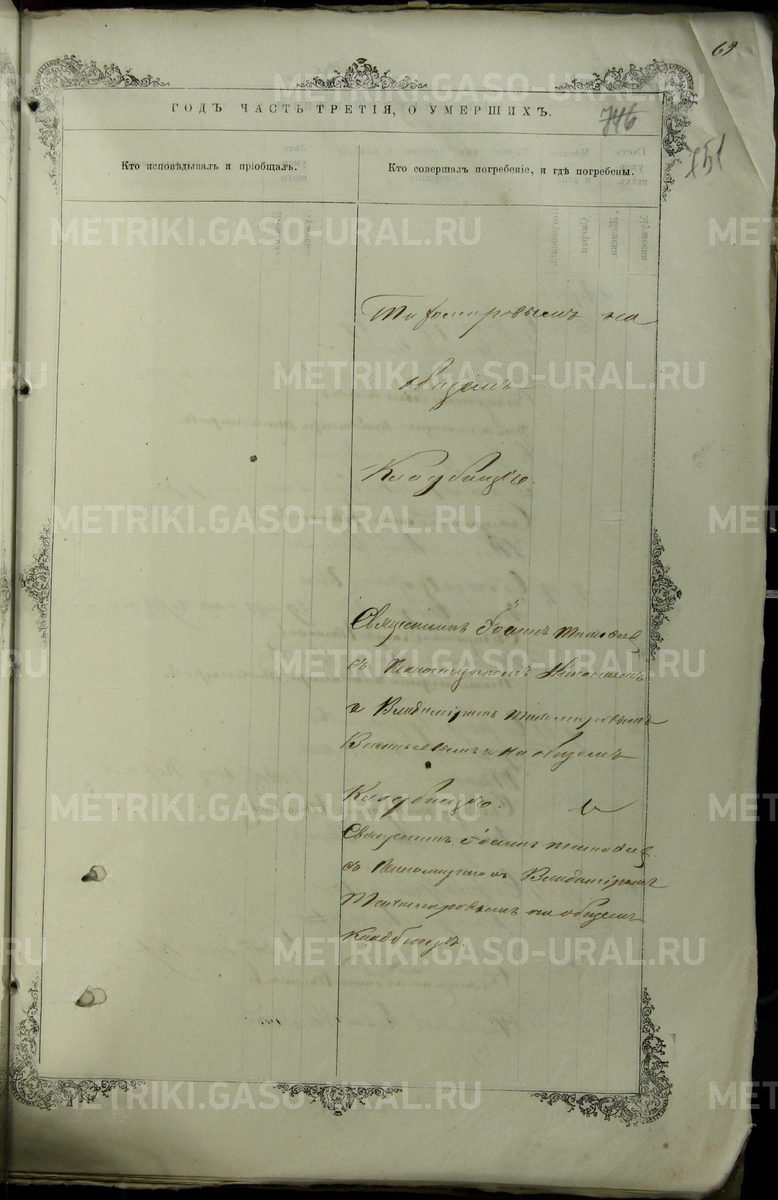 69
ГОДЪ ЧАСТЬ ТРЕТІЯ, О УМЕРШИХЪ.
746
751
Кто исповѣдывалъ и пріобщалъ.
Кто совершалъ погребеніе, и гдѣ погребены.
METRIKI.GASO-URAL.RU
Тихомировымъ на
общемъ
Кладбищѣ.
Священникъ Іоаннъ Тимоѳеев
съ Псаломщикомъ
и Владиміромъ Тихомировымъ
на общемъ
Кладбищѣ.
Священникъ Іоаннъ Тимоѳеев
съ Псаломщикомъ Владиміромъ
Тихомировымъ на общемъ
кладбищѣ.